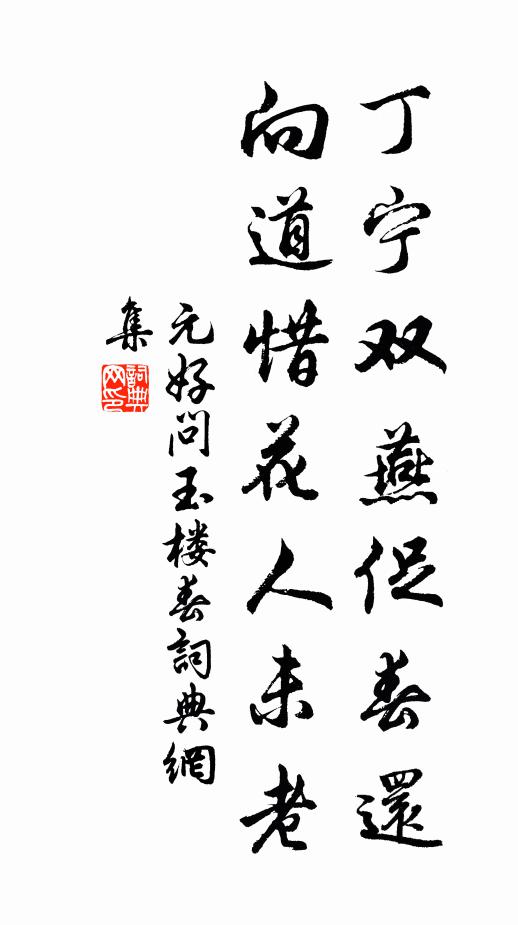 丁宁双燕促春還
向道惜花人未老
元好問玉楼春詞典網
集
詞典网印